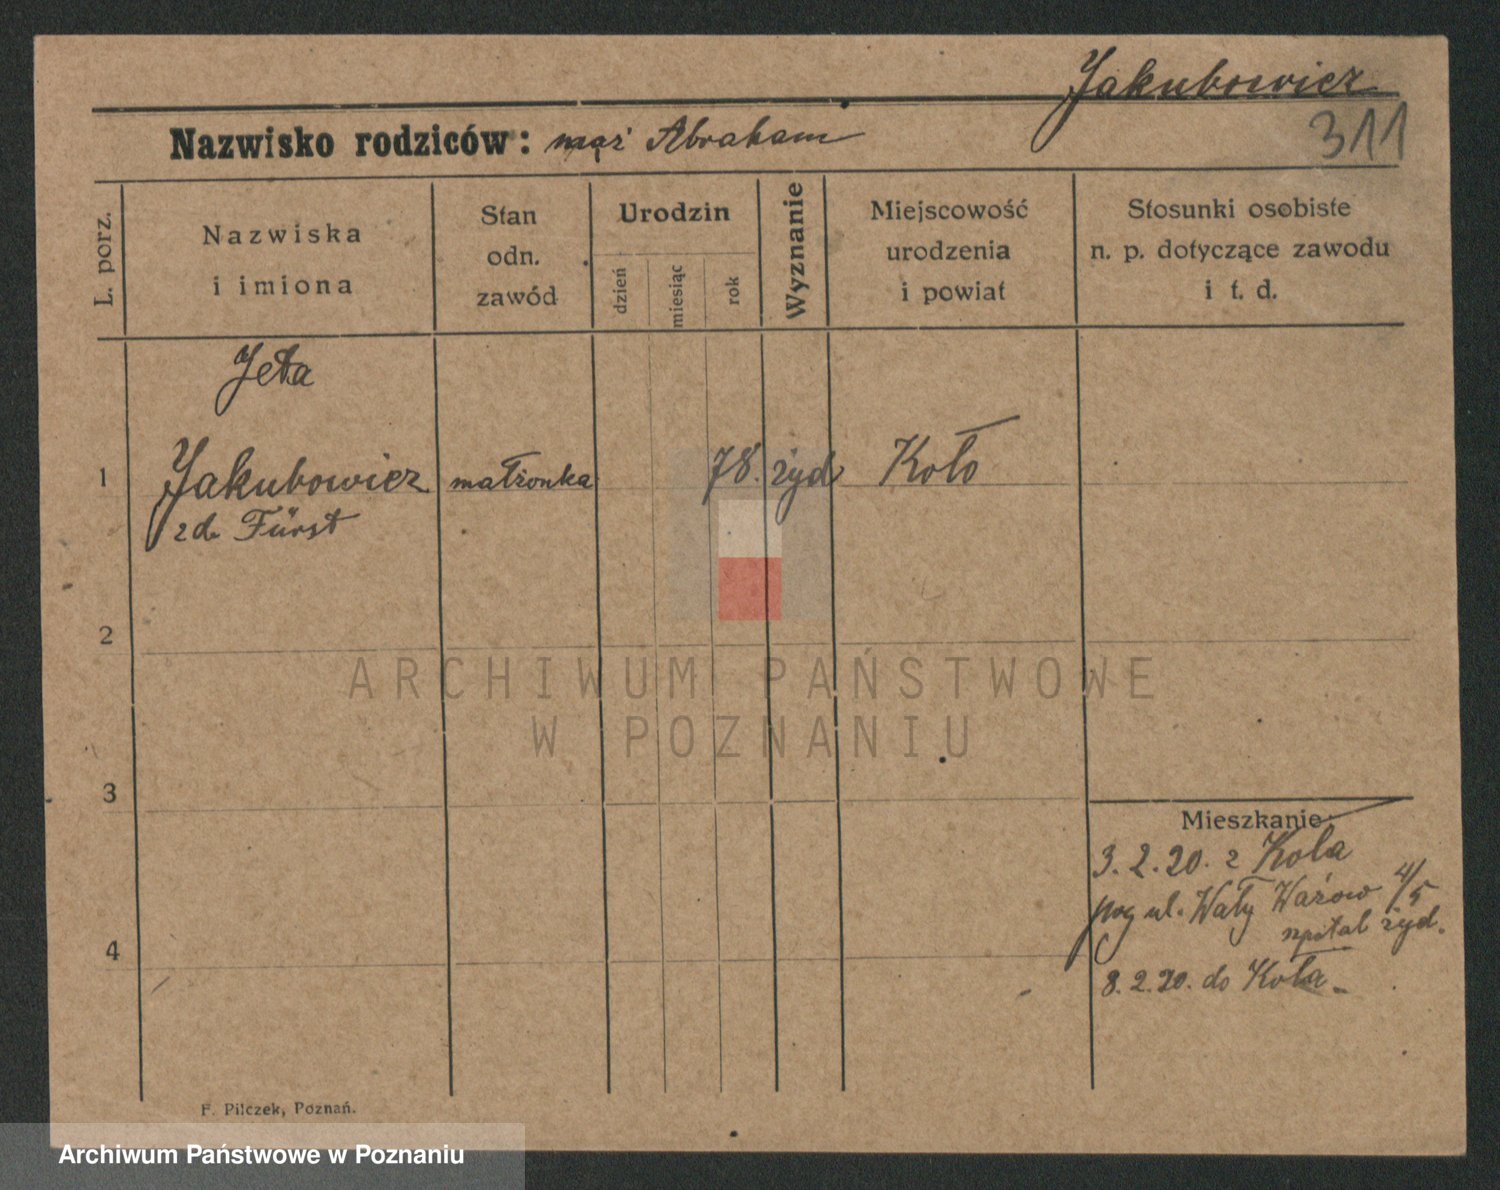 Jakubowicz
311
Nazwisko rodziców: mąż Abraham
L. porz.
Nazwiska
i imiona
Stan
odn.
zawód
Urodzin
dzień
miesiąc
rok
Wyznanie
Miejscowość
urodzenia
i powiat
Stosunki osobiste
n. p. dotyczące zawodu
i t. d.
Jeta
1 Jakubowicz małżonka 78. żyd Koło
zd. Fürst
2
ARCHIWUM PAŃSTWOWE
W POZNANIU
3
Mieszkanie:
3.2.20. z Koła
ul. Wały Ważow 4/5
szpital żyd.
4
8.2.20. do Koła
F. Pilczek, Poznań.
Archiwum Państwowe w Poznaniu